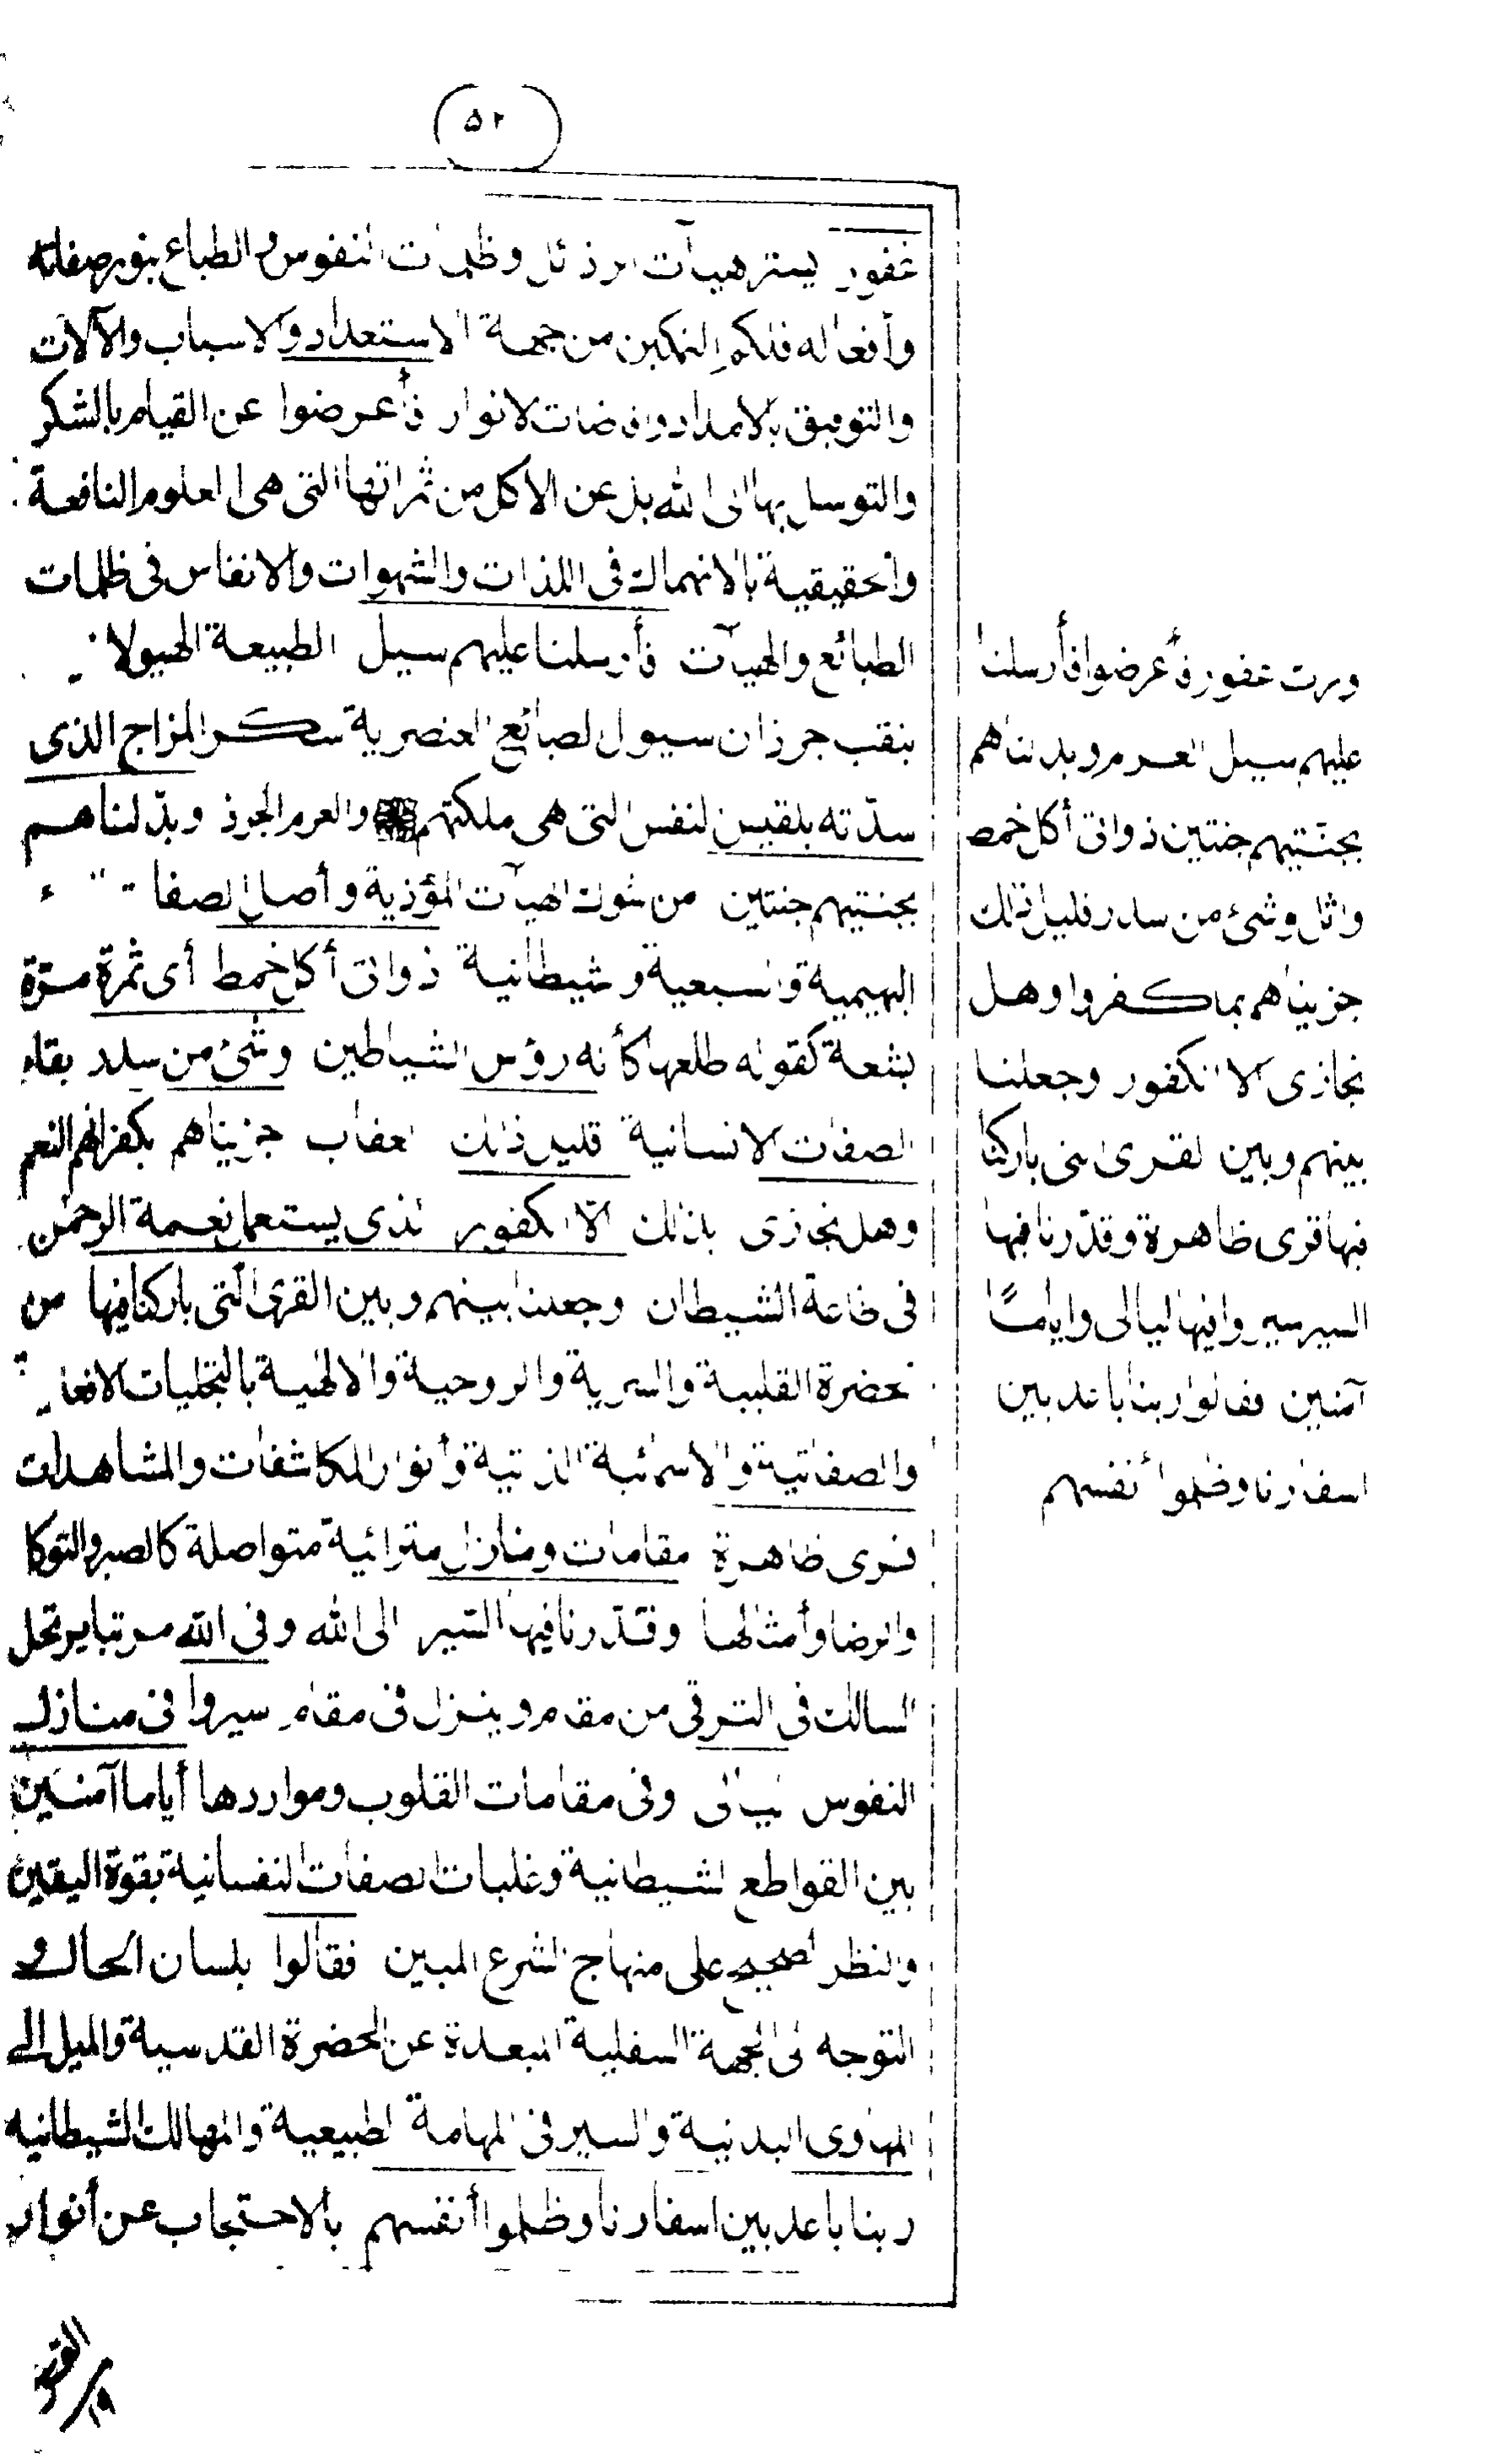 ٥٢
غفور يستر هيآت الرذائل وظلمات النفوس والطباع بنور صفاته
وأفعاله فلكم التمكين من جهة الاستعداد والاسباب والآلات
والتوفيق بالامداد وافاضات الانوار فأعرضوا عن القيام بالشكر
والتوسل بها الى الله بل عن الاكل من ثمراتها التى هى العلوم النافعة
والحقيقية بالانهماك فى اللذات والشهوات والانغاس فى ظلمات
الطبائع والهيآت فأرسلنا عليهم سيل الطبيعة الهيولا
بنقب جرذان سيول الطبائع العنصرية سكر المزاج الذى
سدّته بلقيس النفس التى هى ملكتهم والعرم الجرذ وبدّلناهم
بجنتيهم جنتين من شوك الهيآت المؤذية وأصل الصفا
البهيمية والسبعية والشيطانية ذواتى أكل خمط أى ثمرة مرّة
بشعة كقوله طلعها كأنه رؤس الشياطين وشئ من سدر بقاء
الصفات الانسانية قليل ذلك العقاب جزيناهم بكفرانهم النعم
وهل نجازى بذلك الّا الكفور الذى يستعمل نعمة الرحمن
فى طاعة الشيطان وجعلنا بينهم وبين القرى الّتى باركنا فيها من
الحضرة القلبية والسرية والروحية والالهية بالتجليات الافعا
والصفاتية والاسمائية الذاتية وأنوار المكاشفات والمشاهدات
قرى ظاهرة مقامات ومنازل مترائية متواصلة كالصبر والتوكل
والرضا وأمثالها وقدّرنا فيها السّير الى الله وفى الله مرتبا يرتحل
السالك فى الترقى من مقام وينزل فى مقام سيروا فى منازل
النفوس ليالى وفى مقامات القلوب ومواردها أياما آمنين
بين القواطع الشيطانية وغلبات الصفات النفسانية بقوة اليقين
والنظر الصحيح على منهاج الشرع المبين فقالوا بلسان الحال و
التوجه الى الجهة السفلية المبعدة عن الحضرة القدسية والميل الى
المهاوى البدنية والسير فى المهامة الطبيعية والمهالك الشيطانيه
ربنا باعد بين اسفارنا وظلموا أنفسهم بالاحتجاب عن أنوار
ورب غفور فأعرضوا فأرسلنا
عليهم سيل العرم وبدلناهم
بجنّتيهم جنتين ذواتى أكل خمط
واثل وشئ من سدر قليل ذلك
جزيناهم بما كفروا وهل
نجازى الا الكفور وجعلنا
بينهم وبين القرى التى باركنا
فيها قرى ظاهرة وقدّرنا فيها
السير سيروا فيها ليالى وايامًا
آمنين فقالوا ربنا باعد بين
اسفارنا وظلموا أنفسهم